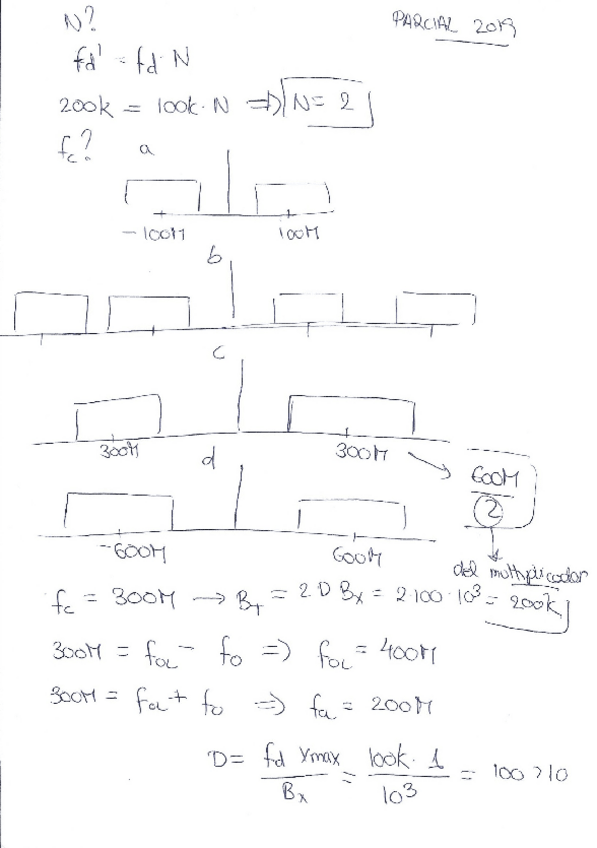 N?
PARCIAL 2019
fd' = fd · N
200k = 100k · N => N = 2
fc? a
-100M 100M
b
c
300M 300M
600M
2
d
-600M 600M
del multiplicador
fc = 300M → B_T = 2 D Bx = 2·100·10³ = 200k
300M = foL - fo => foL = 400M
300M = foL + fo => foL = 200M
D = fd xmax / Bx = 100k · 1 / 10³ = 100 > 10